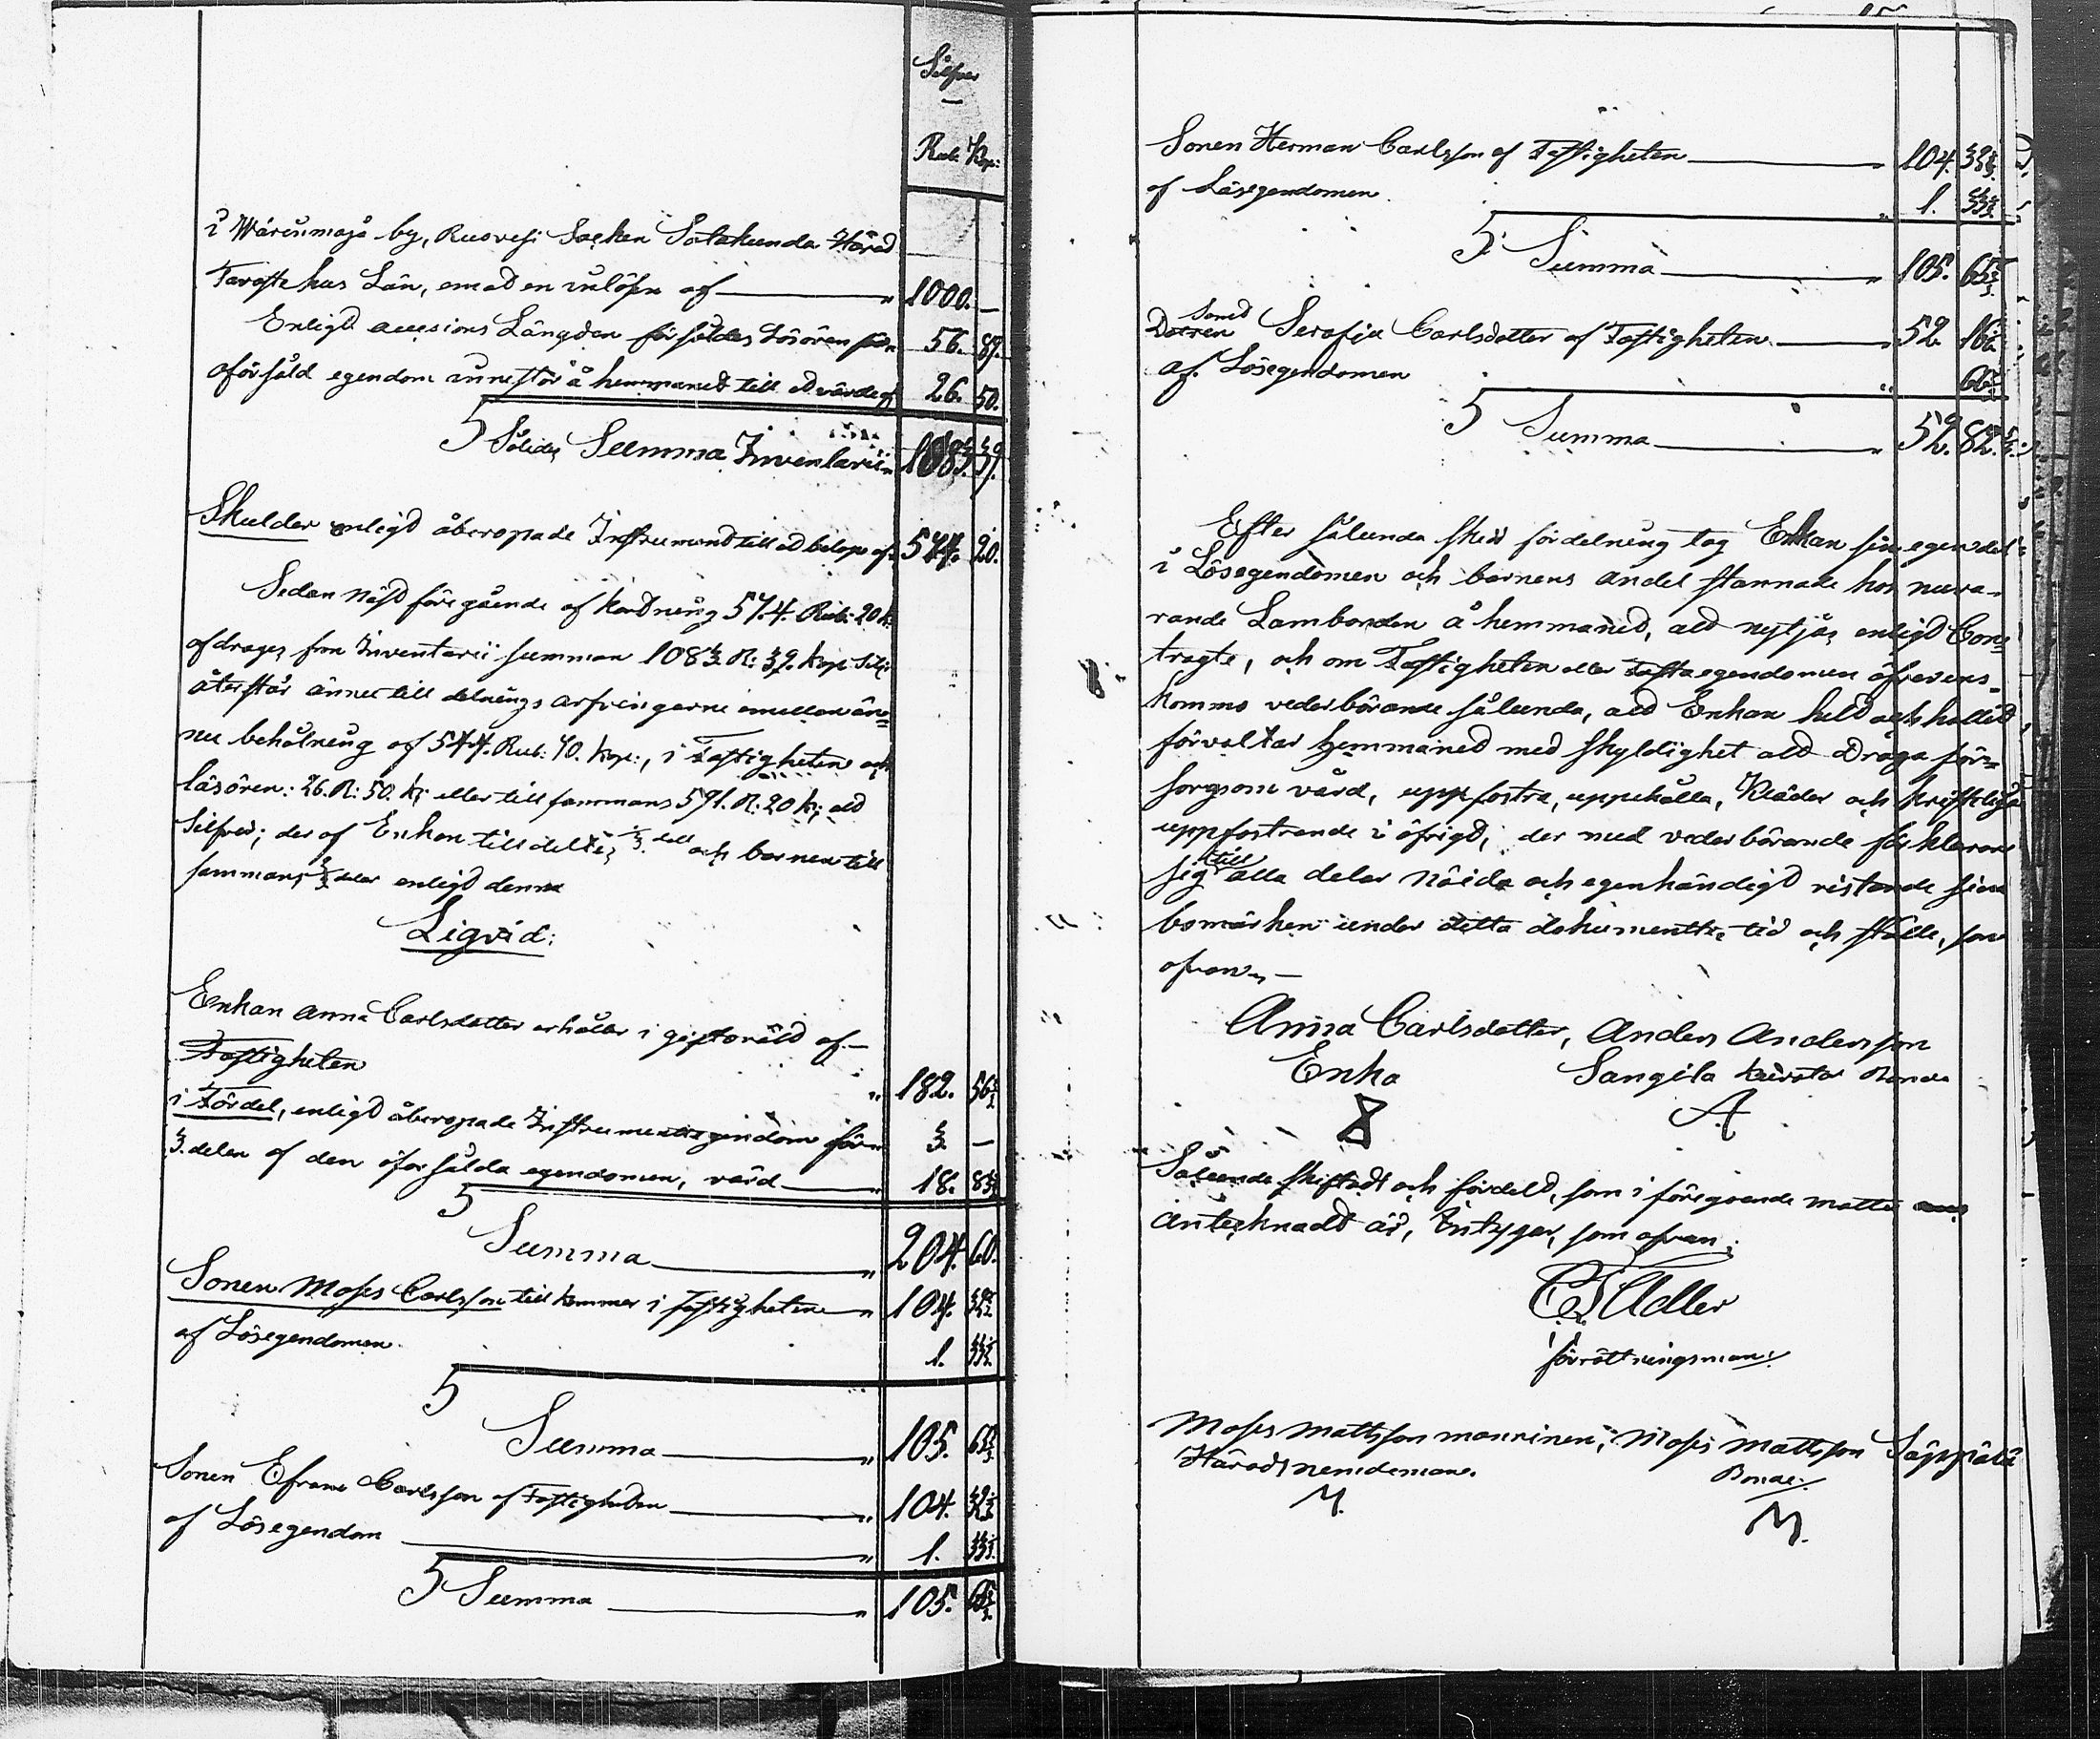 Silfver
—
Rub. Kop:
i Wárinmaja by, Ruovesi Socken Satakunda Härad
Tavastehus Län, emad en inlösen af — " 1000. —
Enligd auesions Längden försåldes Lösören för 56. 89.
oförsåld egendom å hemmaned till ed värde af 26. 50.
Summa Inventarii 1083. 39.
Skulder enligd åberopade Instrumend till ed belopp af 20.
Sedan näsd föregående afkordning 574. Rub: 20 k:
afdrages från Inventarii summan 1083. R: 39. kop. Silf:
återstår ännu till delnings arfvingarne emellan än=
nu behålning af 544. Rub: 70. kop:, i Fastigheten och
lösören: 26. R: 50. k; eller till sammans 571. R: 20 k; ald
Silfver; der af Enkan till deltes 1/3 del och barnen till
sammans 2/3 delar enligd denna
Liqvid:
Enkan Anna Carlsdotter erhåller i giftoräld af —
Fastigheten " 182. 56
i Fördel, enligd åberopade Instrument egendom för 3. —
3. delen af den oförsålda egendomen, värd — " 18. 83
Summa — " 204. 60.
Sonen Moses Carlsson till kommer i fastigheten — " 104.
af Lösegendomen 1. 33
Summa — " 105. 65
Sonen Efraim Carlsson af Fastigheten — " 104.
af Lösegendom — " 1. 33
Summa — " 105. 65
Sonen Herman Carlsson af Fastigheten — " 104.
af Lösegendomen. " 1. 33
Summa — " 105. 65
Samd
Dotren Serafia Carlsdotter af Fastigheten. — " 52. 16
af. Lösegendomen " 66
Summa — " 52. 82.
Efter sålunda sked fördelning tog Enkan sin egen del
i Lösegendomen och barnens andel stannade hos nuva-
rande Lambonden å hemmaned, ald nytjas enligd Con=
tragte, och om Fastigheten eller Fasta egendomen öfverens=
kommo vederbörande sålunda, ald Enkan held och hålled
förvaltar hemmaned med skyldighet ald draga för=
sorg om vård, uppfostra, uppehålla, kläder och kristeliga
uppfostrande i öfrigd, der med vederbörande förklarar
sig till alla delar nöida och egenhändigd ristande sina
bomärken under detta dokuments tid och ställe, som
ofvan. —
Anna Carlsdotter, Anders Andersson
Enka Sangila Bonde
A
Sålunda skiftadt och fördeld, som i föregående måtto
antecknadt är, Intygar, som ofvan;
CJ Adler
förrättningsman:
Moses Mattsson Manninen; Moses Mattsson Säppälä
Häradsnemdeman. Bonde:
M. M.